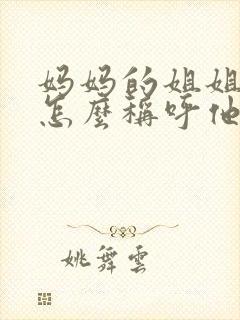 妈妈的姐姐
怎麼稱呼他
姚舞雲